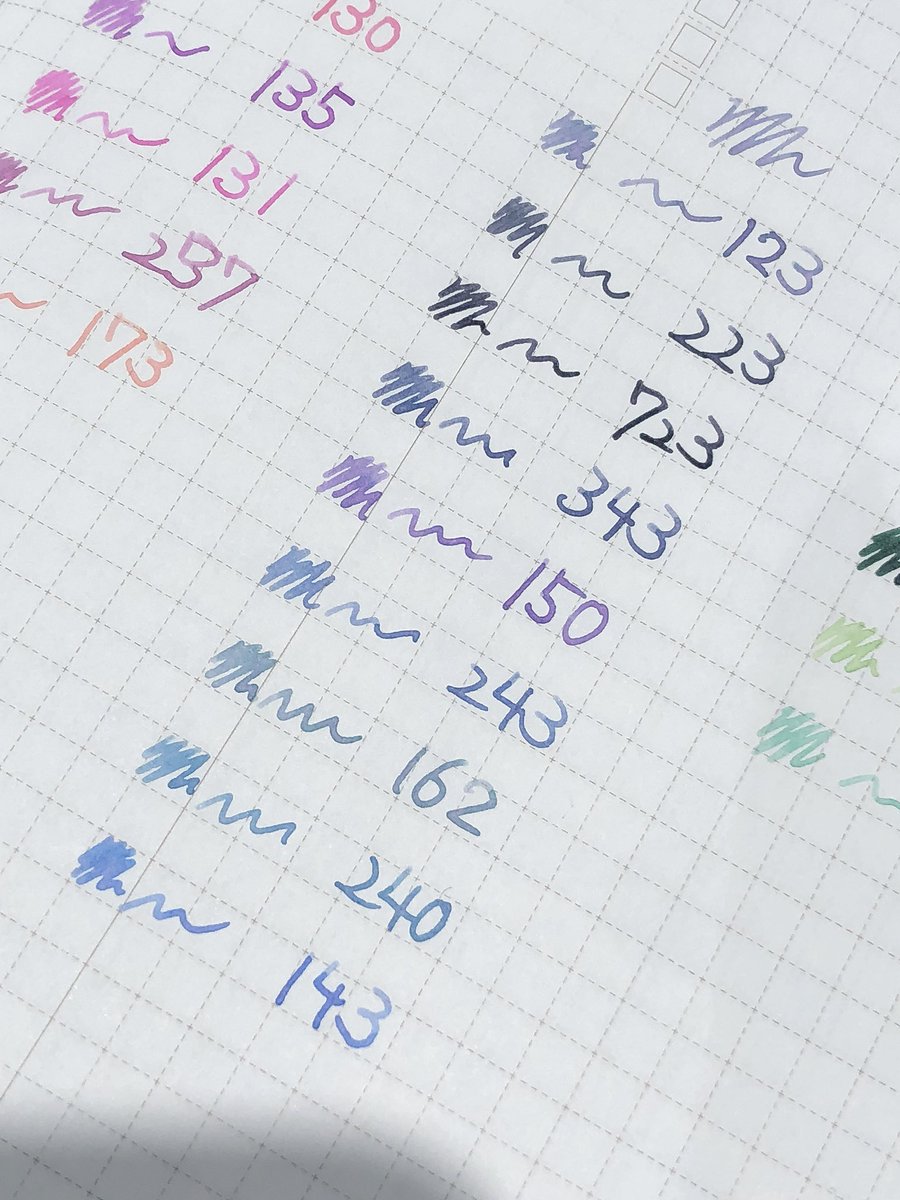 130
135
131
237
173
123
223
723
343
150
243
162
240
143